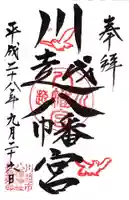 奉拝
川越八幡宮
平成二十八年九月二十六日